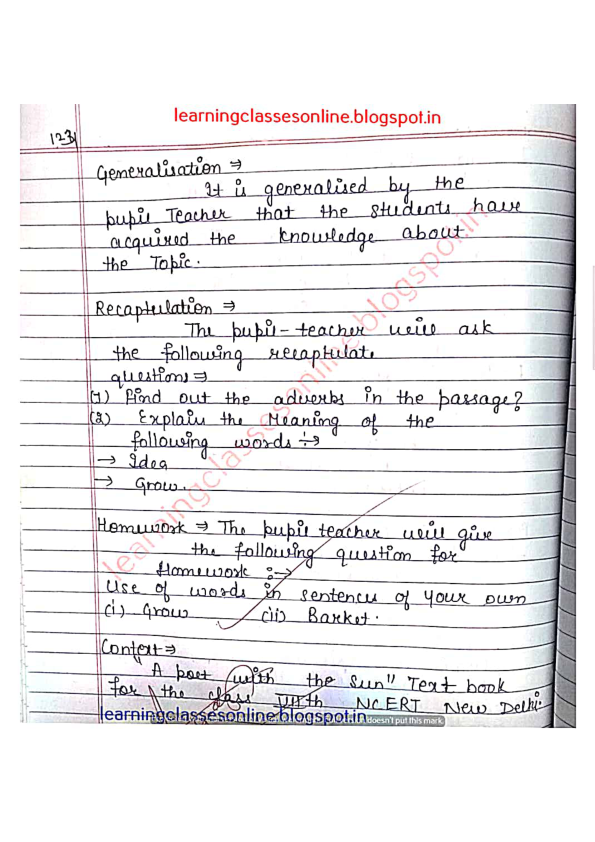 learningclassesonline.blogspot.in
123
Generalisation ⇒
It is generalised by the
pupil Teacher that the students have
acquired the knowledge about
the Topic.
Recaptulation ⇒
The pupil-teacher will ask
the following recaptulate
questions ⇒
(1) Find out the adverbs in the passage?
(2) Explain the Meaning of the
following words :→
→ Idea
→ Grow.
Homework ⇒ The pupil teacher will give
the following question for
Homework :→
Use of words in sentences of your own
(i) Grow (ii) Barket.
Context ⇒
A poet with the Sun" Text book
for the class th NCERT New Delhi
learningclassesonline.blogspot.in doesn't put this mark
learningclassesonline.blogspot.in